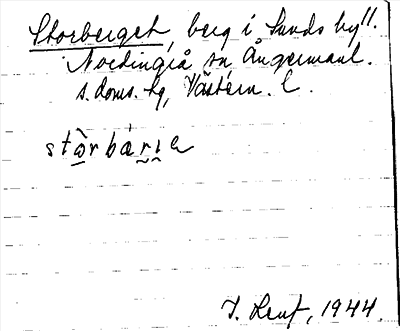 Storberget, berg i Sunds by 11.
Nordingrå sn Ångermanl.
s. doms. hg, Västern. l.
stòrbærıe
1944.